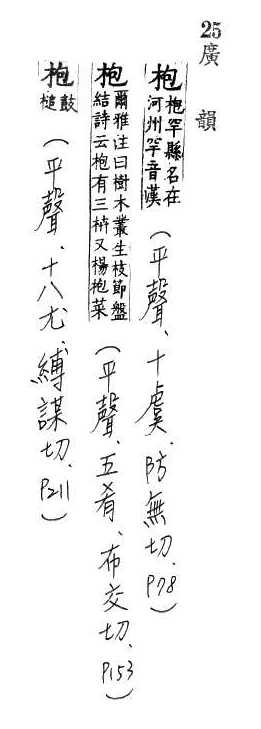 25廣韻
枹枹罕縣名在河州罕音漢（平聲、十虞、防無切、P78）
枹爾雅注曰樹木叢生枝節盤結詩云枹有三枿又楊枹菜（平聲、五肴、布交切、P153）
枹鼓槌（平聲、十八尤、縛謀切、P211）